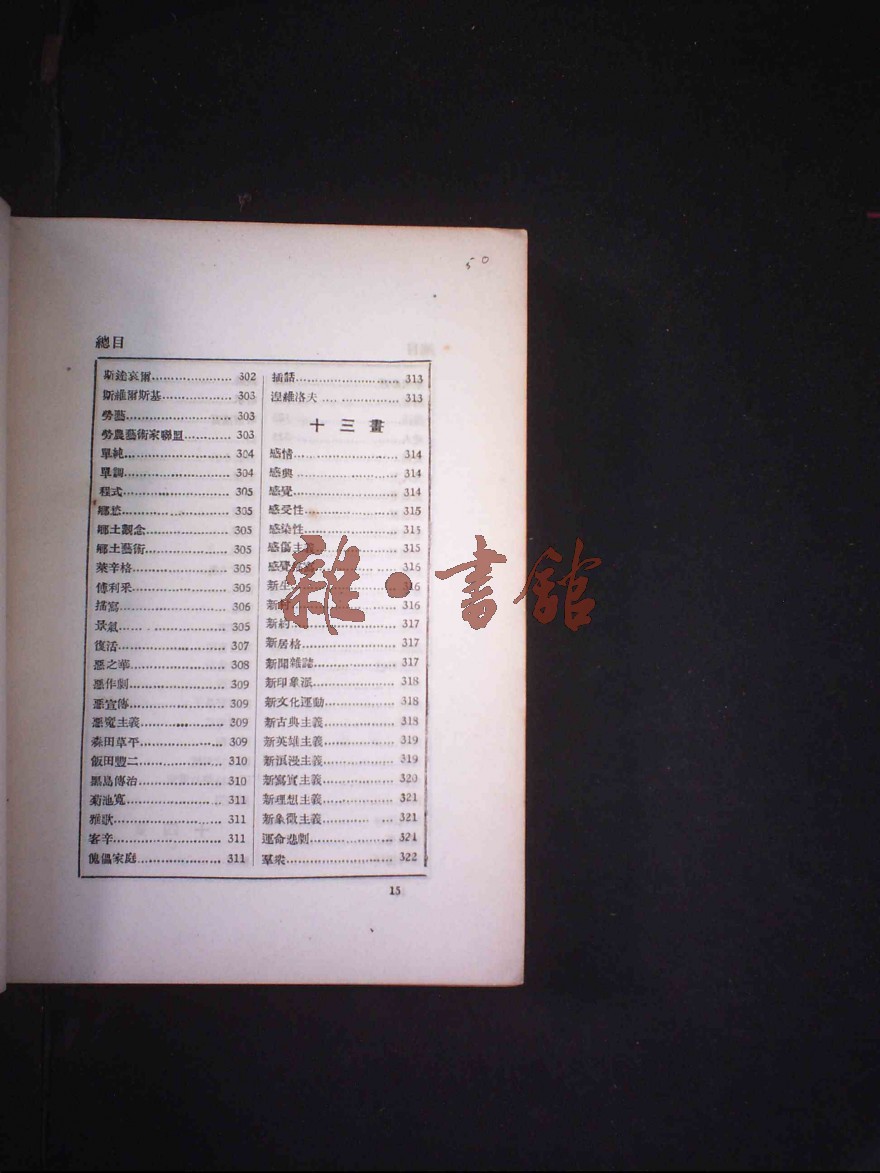 50
總目
斯達哀爾………………… 302
斯維爾斯基……………… 303
勞藝……………………… 303
勞農藝術家聯盟………… 303
單純……………………… 304
單調……………………… 304
程式……………………… 305
鄉愁……………………… 305
鄉土觀念………………… 305
鄉土藝術………………… 305
萊辛格…………………… 305
傅利采…………………… 305
描寫……………………… 306
景氣……………………… 305
復活……………………… 307
惡之華…………………… 308
惡作劇…………………… 309
惡宣傳…………………… 309
惡魔主義………………… 309
森田草平………………… 309
飯田豐二………………… 310
黑島傳治………………… 310
菊池寬…………………… 311
雅歌……………………… 311
客辛……………………… 311
傀儡家庭………………… 311
插話……………………… 313
涅維洛夫………………… 313
十三畫
感情……………………… 314
感興……………………… 314
感覺……………………… 314
感受性…………………… 315
感染性…………………… 315
感傷主義………………… 315
感覺 316
新生 316
新村 316
新約……………………… 317
新居格…………………… 317
新聞雜誌………………… 317
新印象派………………… 318
新文化運動……………… 318
新古典主義……………… 318
新英雄主義……………… 319
新浪漫主義……………… 319
新寫實主義……………… 320
新理想主義……………… 321
新象徵主義……………… 321
運命悲劇………………… 321
羣衆……………………… 322
15
雜·書館